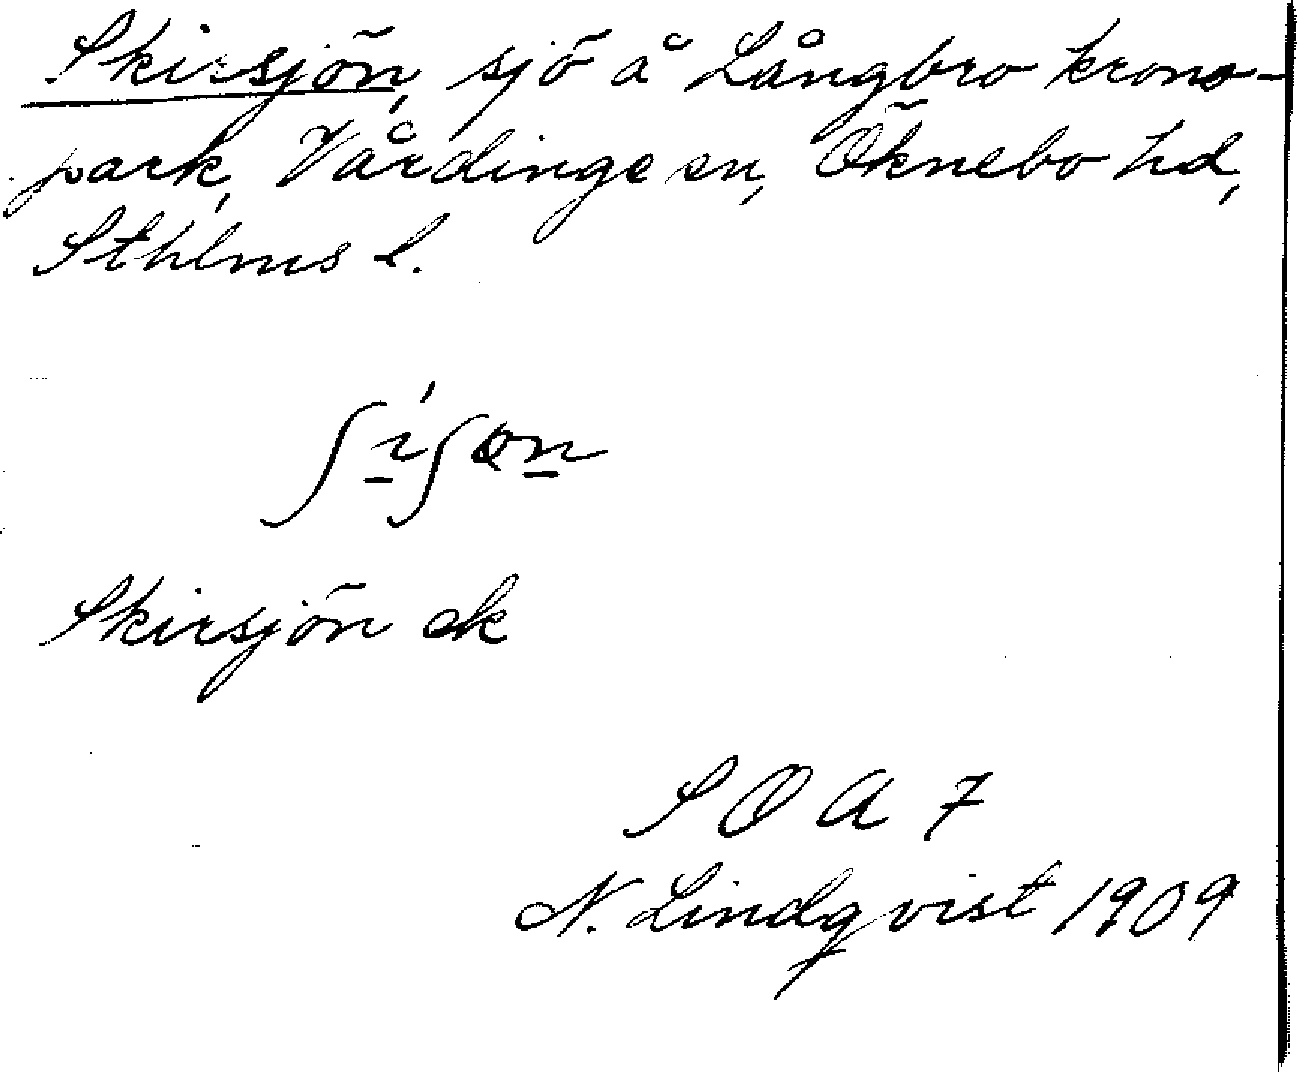 Skirsjön, sjö å Långbro krono-
park, Vårdinge sn, Öknebo hd,
Sthlms l.
Skirsjön ek
S O A 7
N. Lindqvist 1909